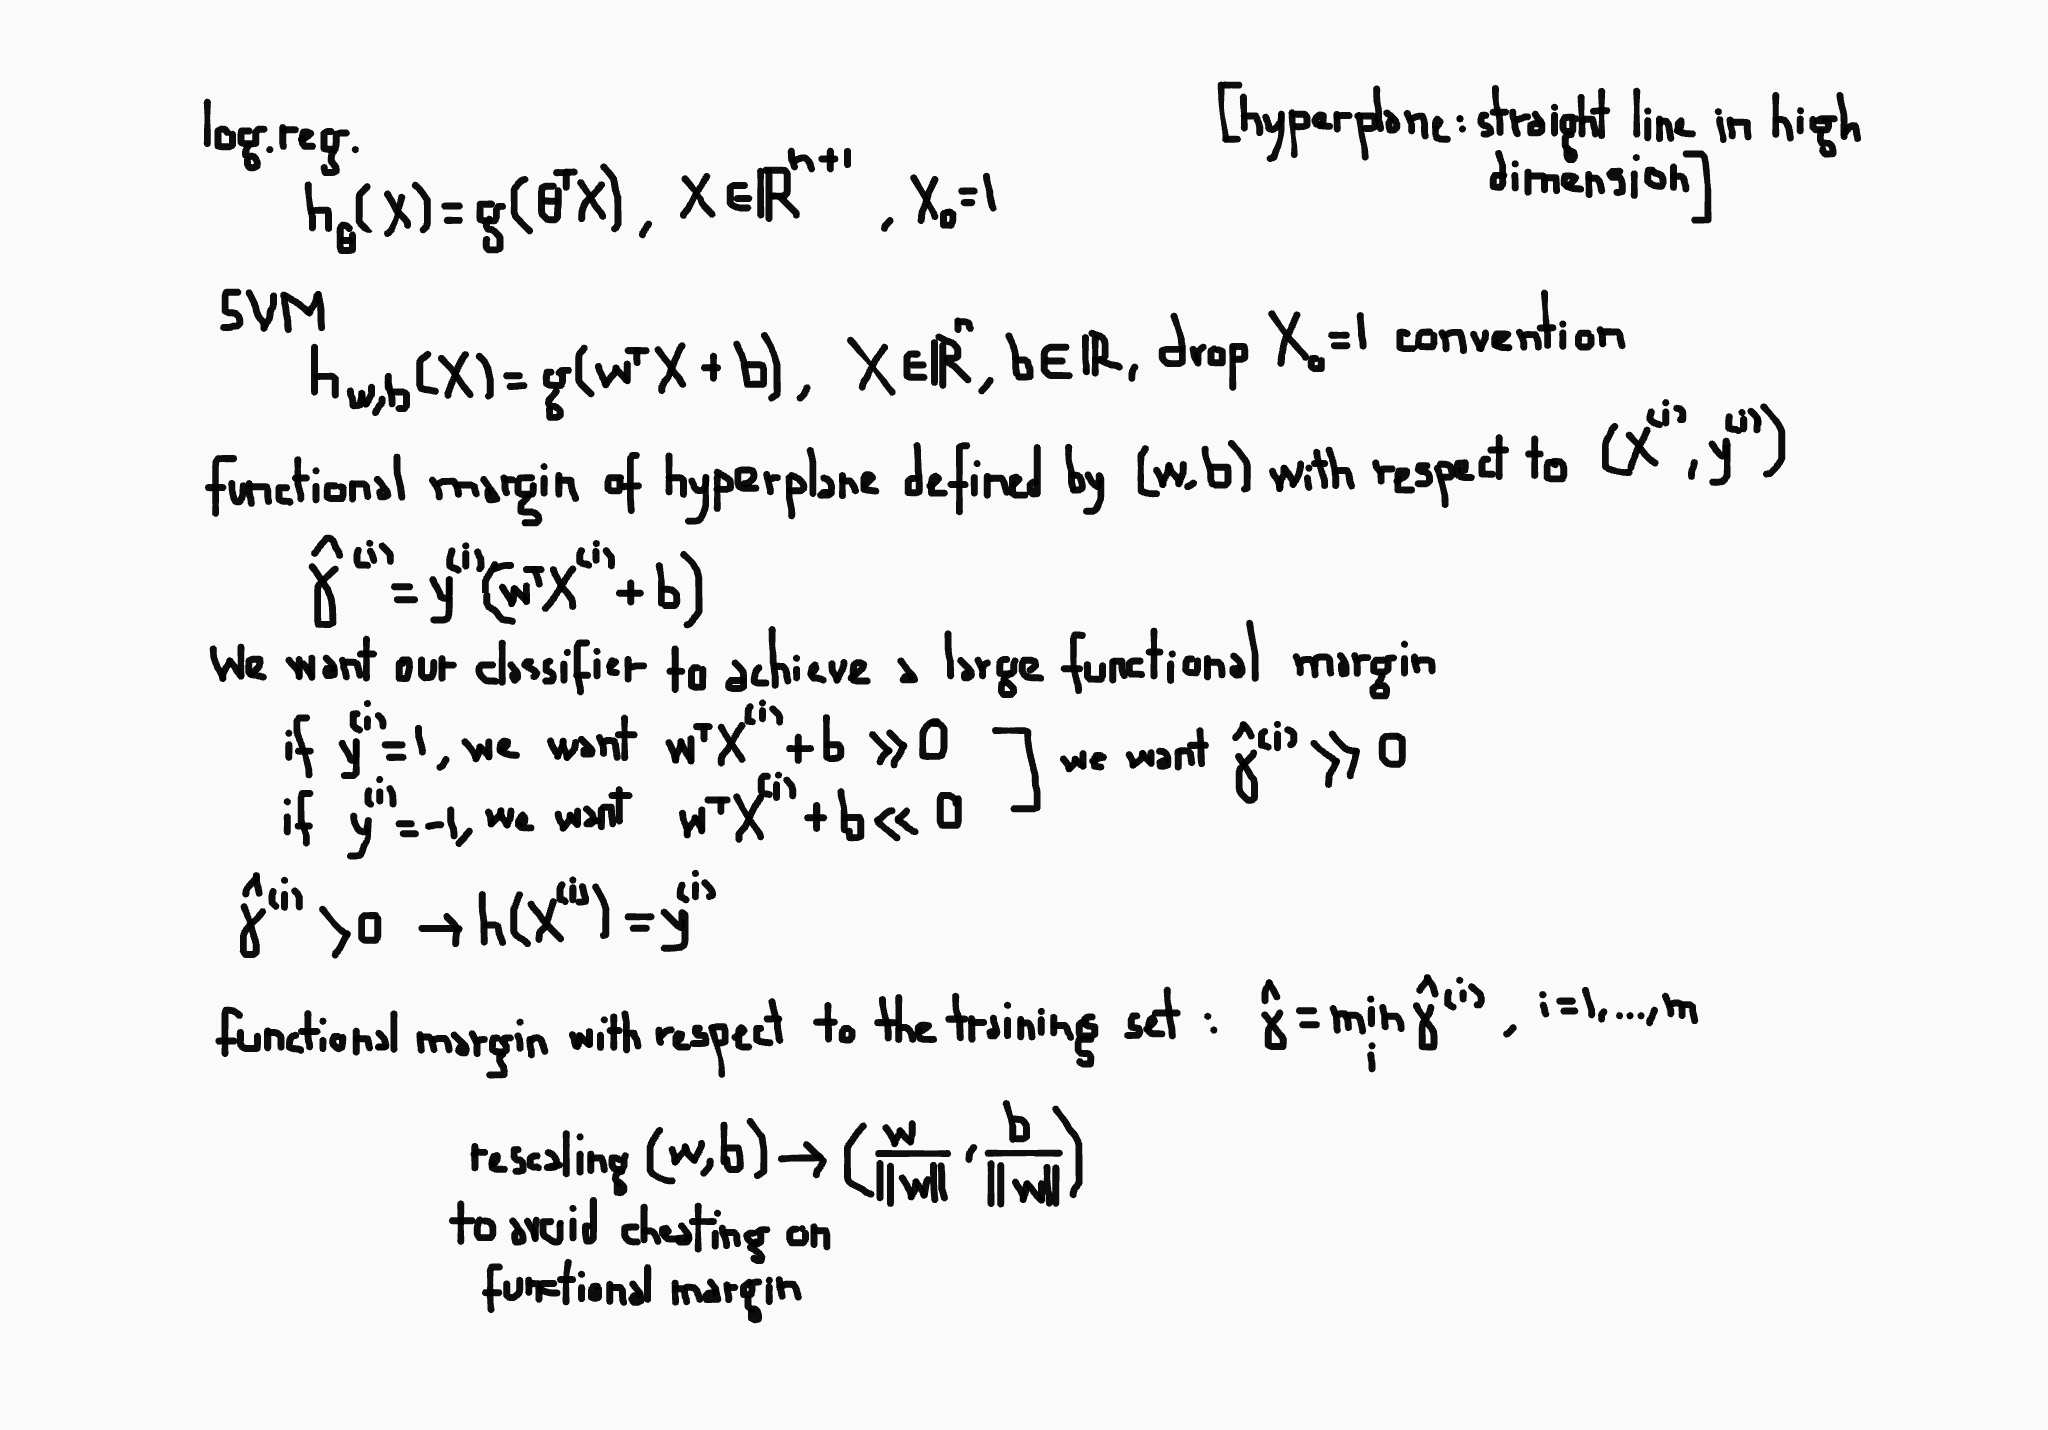 log.reg.
[hyperplane: straight line in high
dimension]
h_θ(X) = g(θᵀX), X ∈ ℝⁿ⁺¹, X₀=1
SVM
h_w,b(X) = g(wᵀX + b), X ∈ ℝⁿ, b ∈ ℝ, drop X₀=1 convention
functional margin of hyperplane defined by (w,b) with respect to (X⁽ⁱ⁾, y⁽ⁱ⁾)
γ̂⁽ⁱ⁾ = y⁽ⁱ⁾(wᵀX⁽ⁱ⁾ + b)
We want our classifier to achieve a large functional margin
if y⁽ⁱ⁾=1, we want wᵀX⁽ⁱ⁾ + b ≫ 0
if y⁽ⁱ⁾=-1, we want wᵀX⁽ⁱ⁾ + b ≪ 0
] we want γ̂⁽ⁱ⁾ ≫ 0
γ̂⁽ⁱ⁾ > 0 → h(X⁽ⁱ⁾) = y⁽ⁱ⁾
functional margin with respect to the training set : γ̂ = min_i γ̂⁽ⁱ⁾, i=1,...,m
rescaling (w,b) → (w/||w||, b/||w||)
to avoid cheating on
functional margin